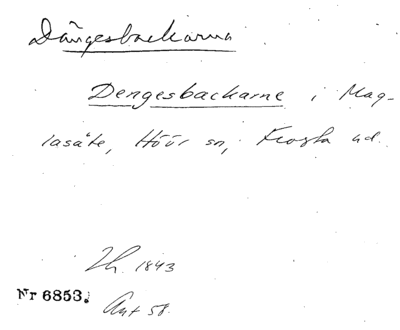 Dängesbackarna
Dengesbackarne i Mag-
lasäte, Höör sn, Frosta hd.
Lh. 1843
Nr 6853.
Ant 58.